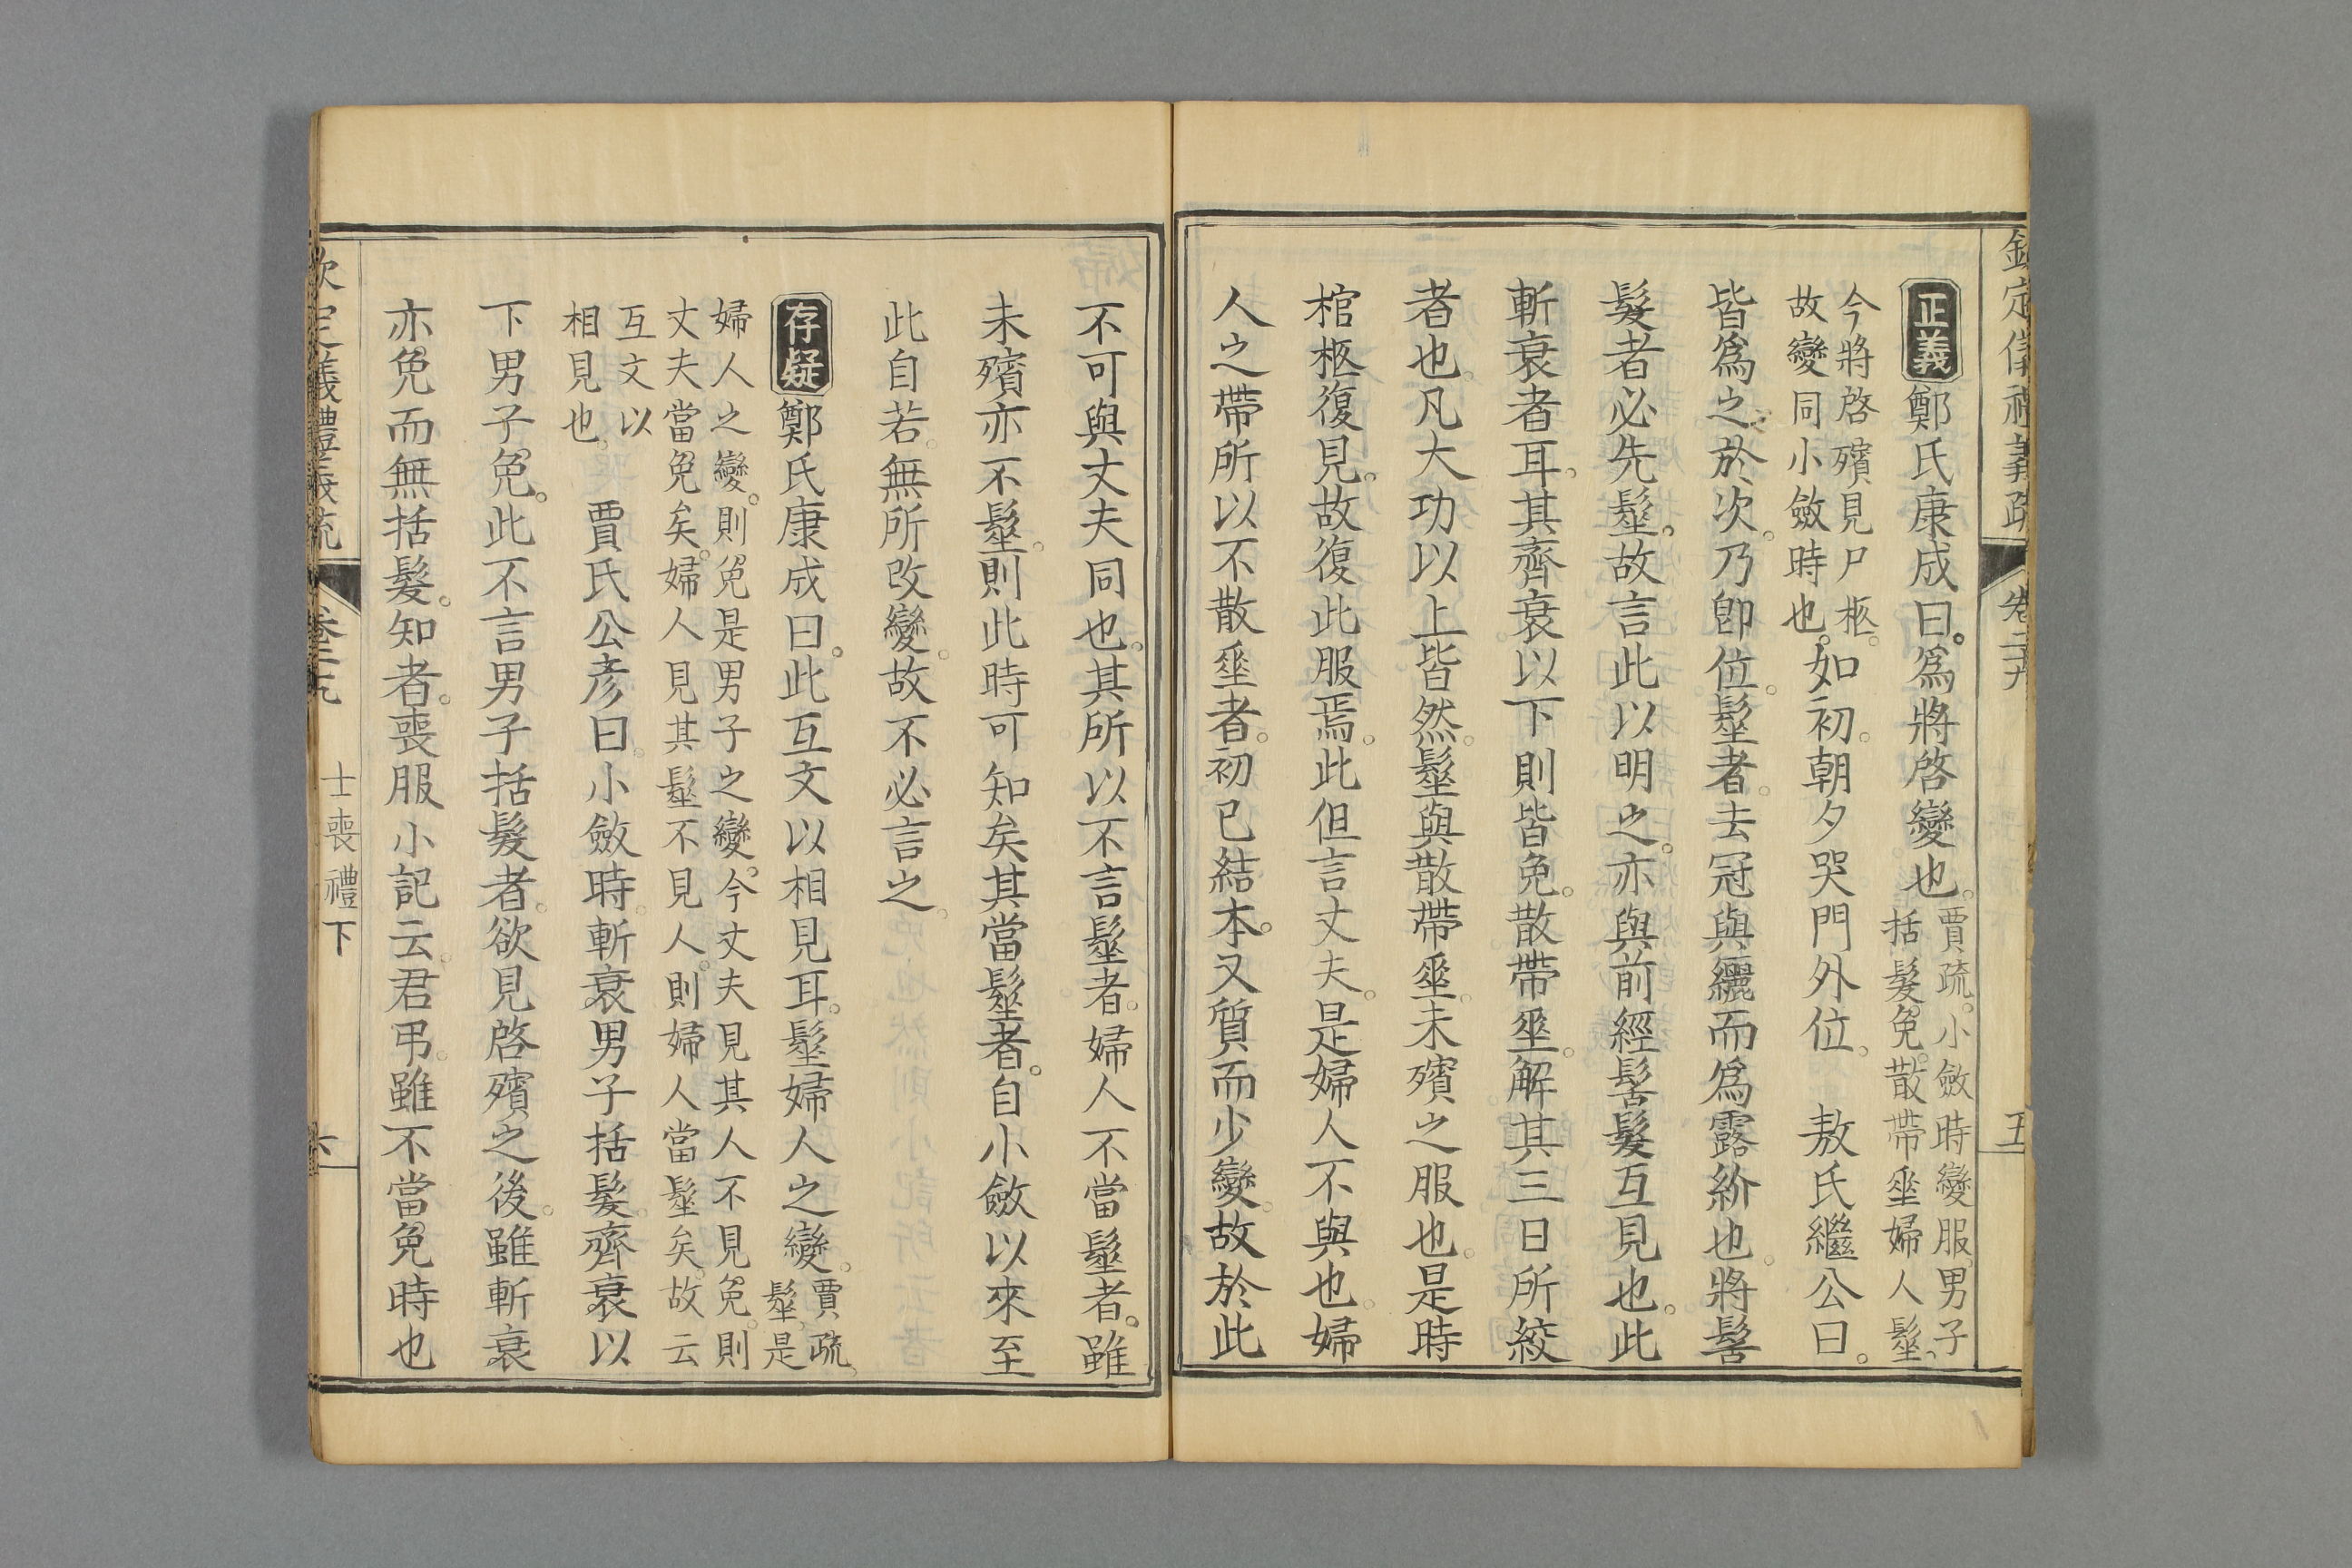 欽定儀禮義疏 卷二十九 五
正義鄭氏康成曰。爲將啓變也。賈疏。小斂時變服。男子
括髮免。散帶𡍮。婦人髽。
今將啓殯見尸柩。
故變同小斂時也。如初。朝夕哭門外位。 敖氏繼公曰。
皆爲之於次。乃卽位。髽者。去冠與纚而爲露紒也。將髺
髮者必先髽。故言此以明之。亦與前經髺髮互見也。此
斬衰者耳。其齊衰以下則皆免。散帶𡍮。解其三日所絞
者也。凡大功以上皆然。髽與散帶𡍮。未殯之服也。是時
棺柩復見。故復此服焉。此但言丈夫。是婦人不與也。婦
人之帶所以不散𡍮者。初已結本。又質而少變。故於此
不可與丈夫同也。其所以不言髽者。婦人不當髽者。雖
未殯亦不髽。則此時可知矣。其當髽者。自小斂以來至
此自若。無所改變。故不必言之。
存疑鄭氏康成曰。此互文以相見耳。髽婦人之變。賈疏。
髽。是
婦人之變。則免是男子之變。今丈夫見其人不見免。則
丈夫當免矣。婦人見其髽不見人。則婦人當髽矣。故云
互文以
相見也。 賈氏公彥曰。小斂時。斬衰男子括髮。齊衰以
下男子免。此不言男子括髮者。欲見啓殯之後。雖斬衰
亦免而無括髮。知者。喪服小記云。君弔。雖不當免時也
欽定儀禮義疏 卷二十九 士喪禮下 六